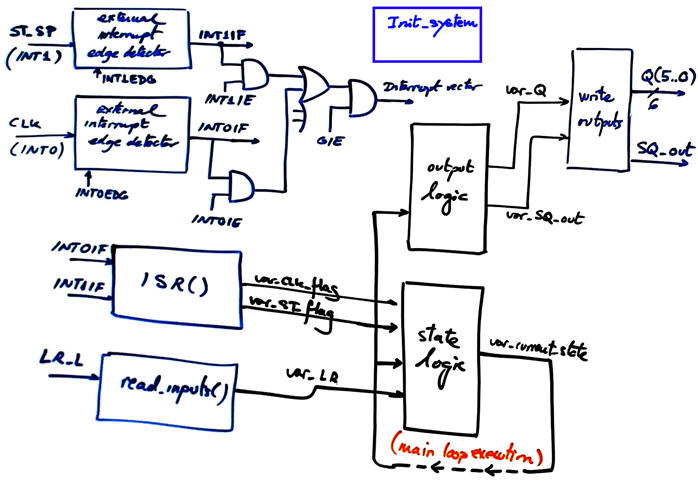 Init_system
ST_SP
(INT1)
external
interrupt
edge detector
INT1EDG
INT1IF
INT1IE
CLK
(INT0)
external
interrupt
edge detector
INT0EDG
INT0IF
INT0IE
GIE
Interrupt vector
output
logic
var_Q
var_SQ_out
write
outputs
Q(5..0)
6
SQ_out
INT0IF
INT1IF
ISR()
var_CLK_flag
var_ST_flag
LR_L
read_inputs()
var_LR
state
logic
var_current_state
(main loop execution)